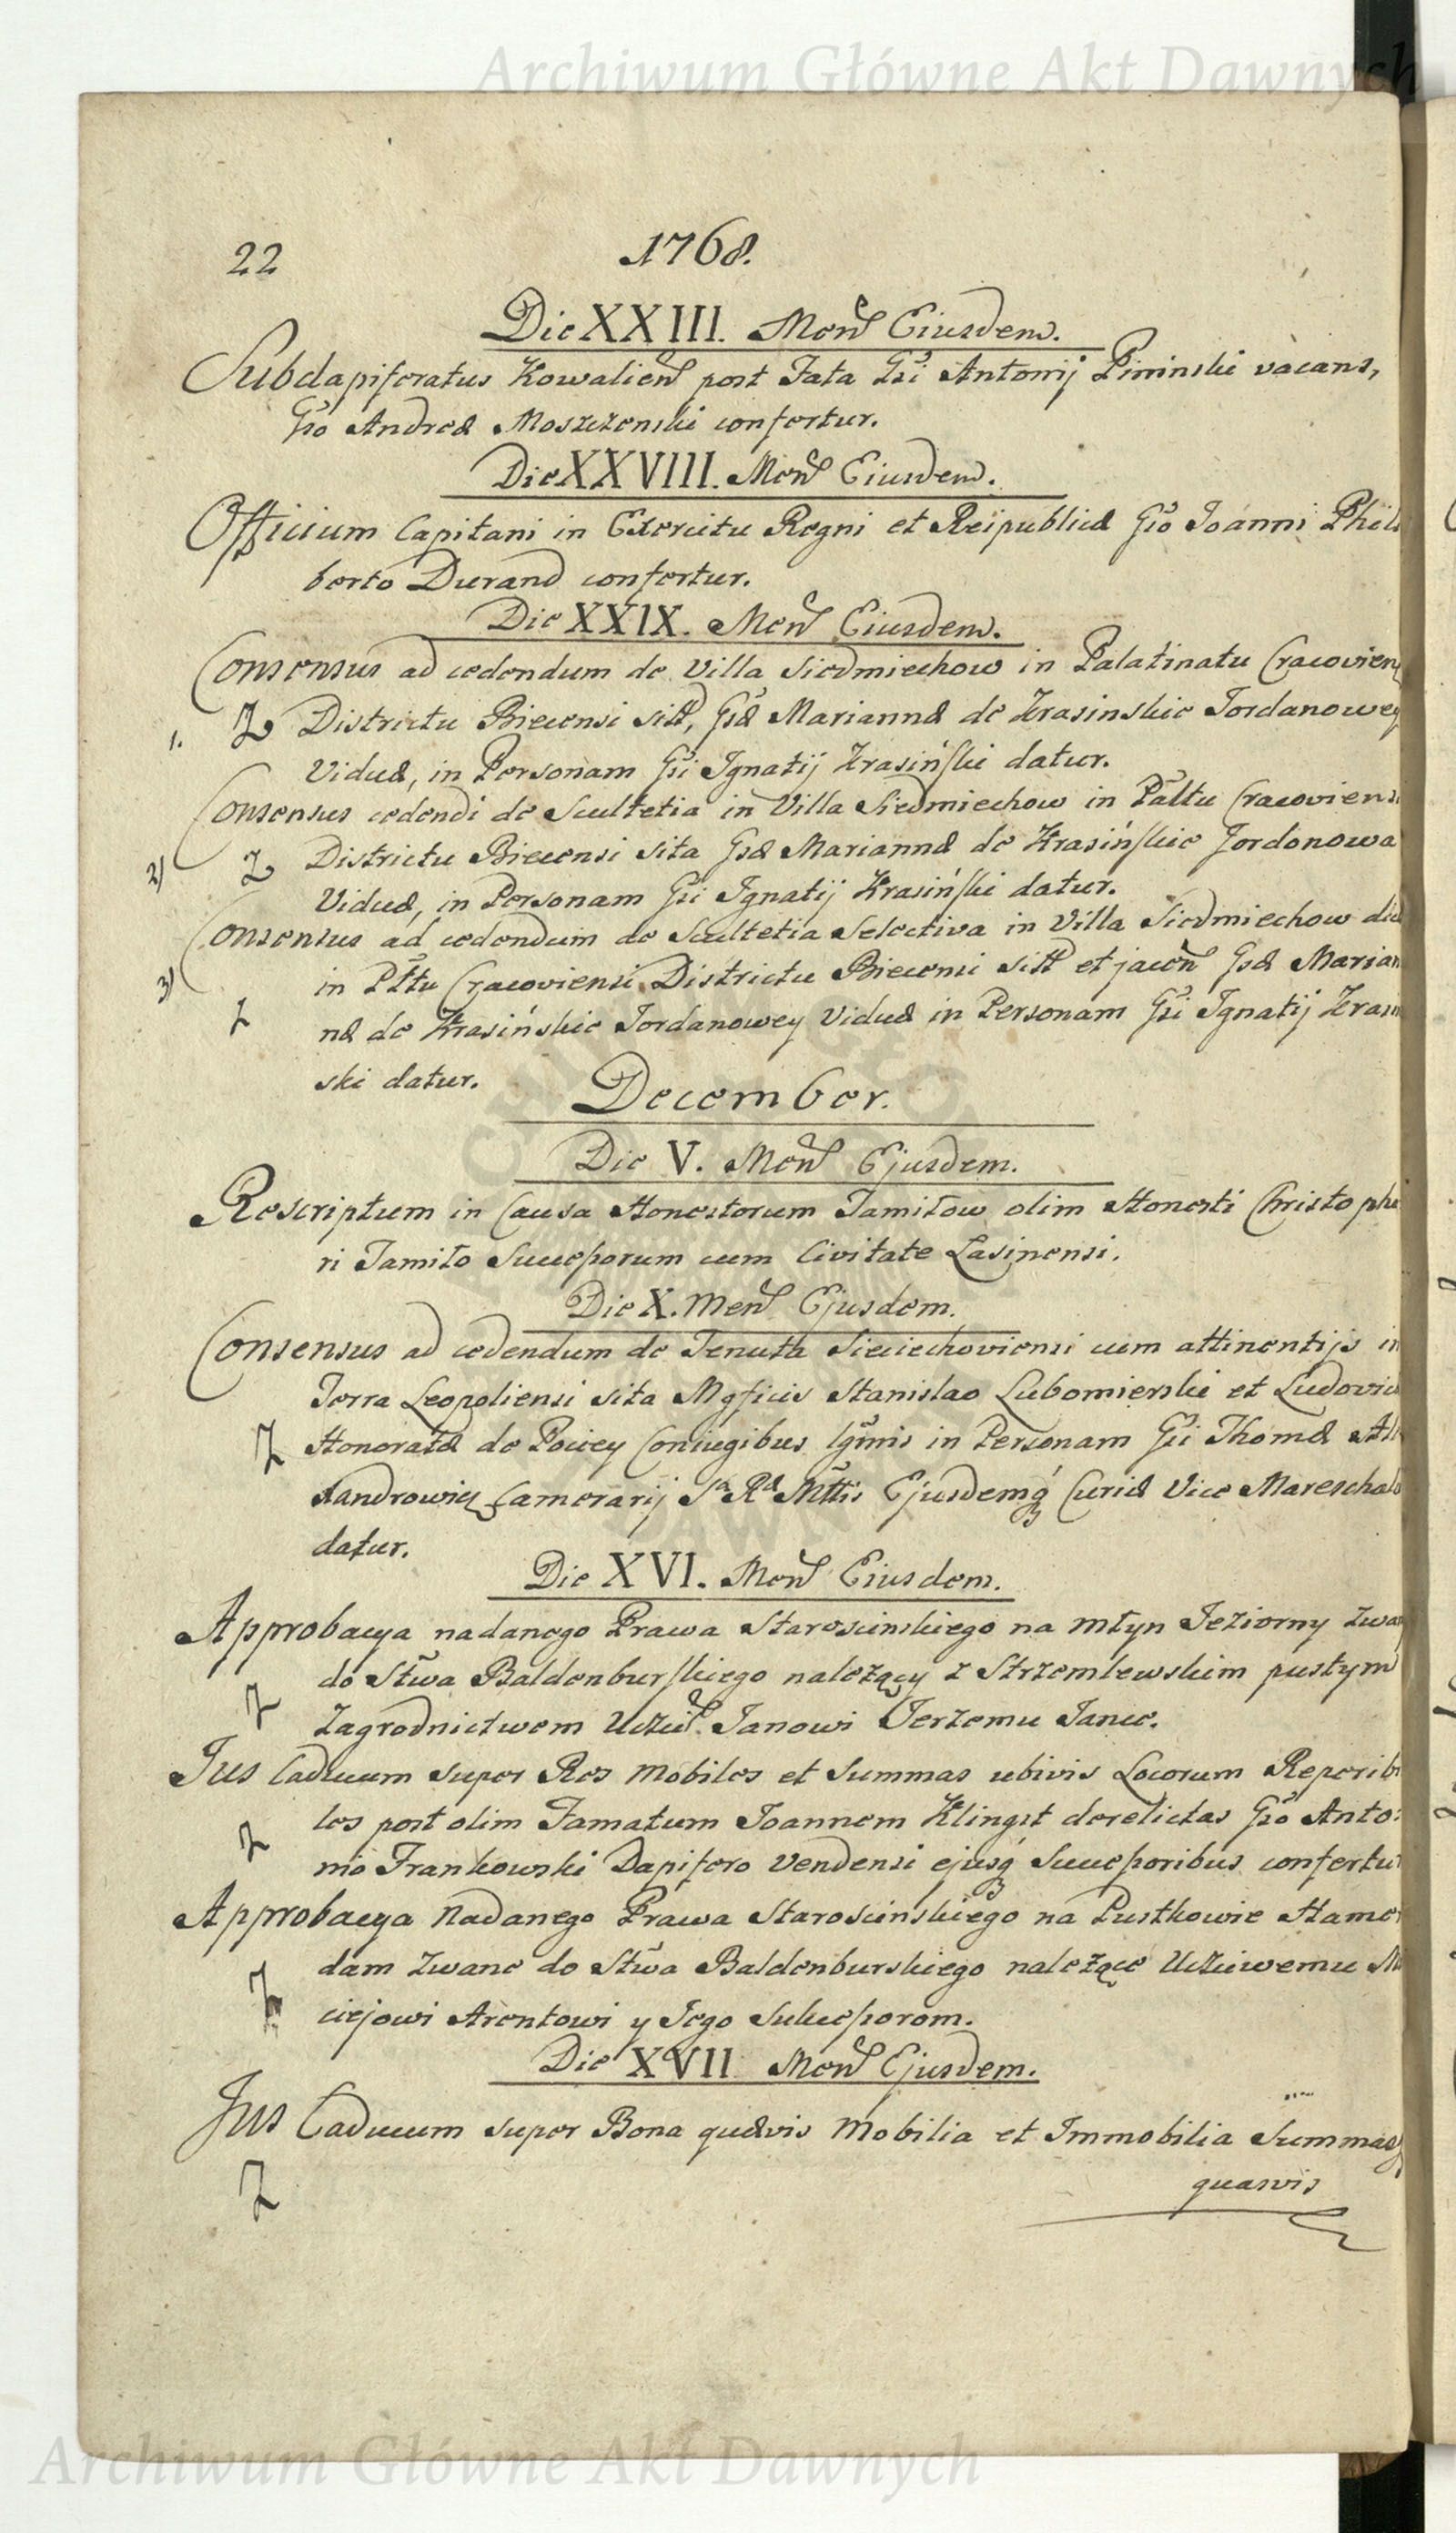 Archiwum Główne Akt Dawnych
22 1768.
Die XXIII. Mens Eiusdem.
Subdapiferatus Kowalien post Fata Gsi Antonij Pininski vacans,
Gso Andreæ Moszczenski confertur.
Die XXVIII. Mens Eiusdem.
Officium Capitani in Exercitu Regni et Reipublicæ Gso Joanni Phili
berto Durand confertur.
Die XXIX. Mens Eiusdem.
Consensus ad cedendum de Villa Siedmiechow in Palatinatu Cracovien
1. Z Districtu Biecensi sitt, Gsæ Mariannæ de Krasinskie Jordanowey
Viduæ, in Personam Gsi Ignatij Krasiński datur.
Consensus cedendi de Scultetia in Villa Siedmiechow in Páltu Cracoviensi
2) Z Districtu Biecensi sita Gsæ Mariannæ de Krasińskie Jordonowa
Viduæ, in Personam Gsi Ignatij Krasiński datur.
Consensus ad cedendum de Scultetia Selectiva in Villa Siedmiechow dic
3) in Plttu Cracoviensi Districtu Biecensi sitt et jacen Gsæ Marian
Z næ de Krasińskie Jordanowey Viduæ in Personam Gsi Ignatij Krasin
ski datur.
December.
Die V. Mens Ejusdem.
Rescriptum in Causa Honestorum Jamitow olim Honesti Christophe
ri Jamito Successorum cum Civitate Lasinensi.
Die X. Mens Ejusdem.
Consensus ad cedendum de Tenuta Sieciechoviensi cum attinentijs in
Terra Leopoliensi sita Mgficis Stanislao Lubomierski et Ludovica
Z Honoratæ de Pociey Coniugibus lgmis in Personam Gsi Thomæ Ale
xandrowicz Camerarij Sæ Ræ Mttis Ejusdemq Curiæ Vice Mareschalo
datur.
Die XVI. Mens Eiusdem.
Approbacya nadanego Prawa Staroscinskiego na młyn Jeziorny zwan
do Stwa Baldenburskiego należący z Strzemlewskim pustym
Z zagrodnictwem Uczciw. Janowi Jerzemu Janic.
Jus Caducum super Res mobiles et Summas ubivis Locorum Reperibi
Z les post olim Famatum Joannem Klingst derelictas Gso Anto:
nio Frankowski Dapifero Vendensi ejusq Successoribus confertur
Approbacya Nadanego Prawa Staroscinskiego na Pustkowie Hamer
dam zwane do Stwa Baldenburskiego należące Uczciwemu Ma
Z ciejowi Arentowi y Jego Sukcessorom.
Die XVII Mens Ejusdem.
Jus Caducum super Bona quævis Mobilia et Immobilia Summasq
Z quasvis
Archiwum Główne Akt Dawnych